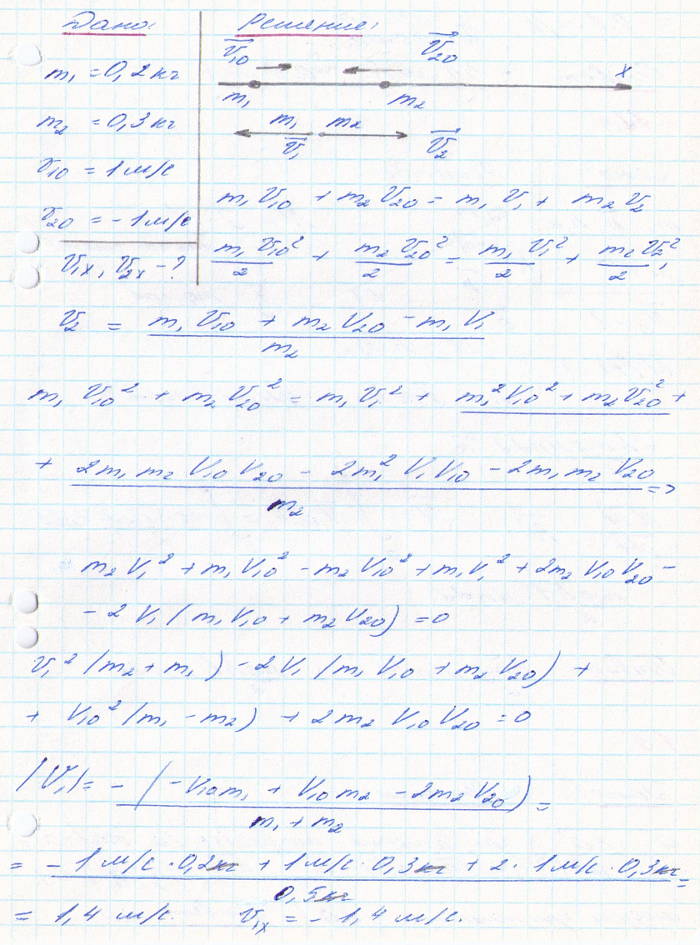 Дано:
m₁ = 0,2 кг
m₂ = 0,3 кг
v₁₀ = 1 м/с
v₂₀ = -1 м/с
v₁ₓ, v₂ₓ - ?
Решение:
v⃗₁₀ v⃗₂₀
x
m₁ m₂
m₁ m₂
v⃗₁ v⃗₂
m₁v₁₀ + m₂v₂₀ = m₁v₁ + m₂v₂
m₁v₁₀²/2 + m₂v₂₀²/2 = m₁v₁²/2 + m₂v₂²/2,
v₂ = (m₁v₁₀ + m₂v₂₀ - m₁v₁)/m₂
m₁v₁₀² + m₂v₂₀² = m₁v₁² + m₁²v₁₀² + m₂v₂₀² +
+ 2m₁m₂v₁₀v₂₀ - 2m₁²v₁v₁₀ - 2m₁m₂v₂₀ / m₂ =>
m₂v₁² + m₁v₁₀² - m₂v₁₀² + m₁v₁² + 2m₂v₁₀v₂₀ -
- 2v₁(m₁v₁₀ + m₂v₂₀) = 0
v₁²(m₂ + m₁) - 2v₁(m₁v₁₀ + m₂v₂₀) +
+ v₁₀²(m₁ - m₂) + 2m₂v₁₀v₂₀ = 0
|v₁| = - (-v₁₀m₁ + v₁₀m₂ - 2m₂v₂₀)/(m₁ + m₂) =
= (-1 м/с · 0,2 кг + 1 м/с · 0,3 кг + 2 · 1 м/с · 0,3 кг)/0,5 кг =
= 1,4 м/с. v₁ₓ = - 1,4 м/с.